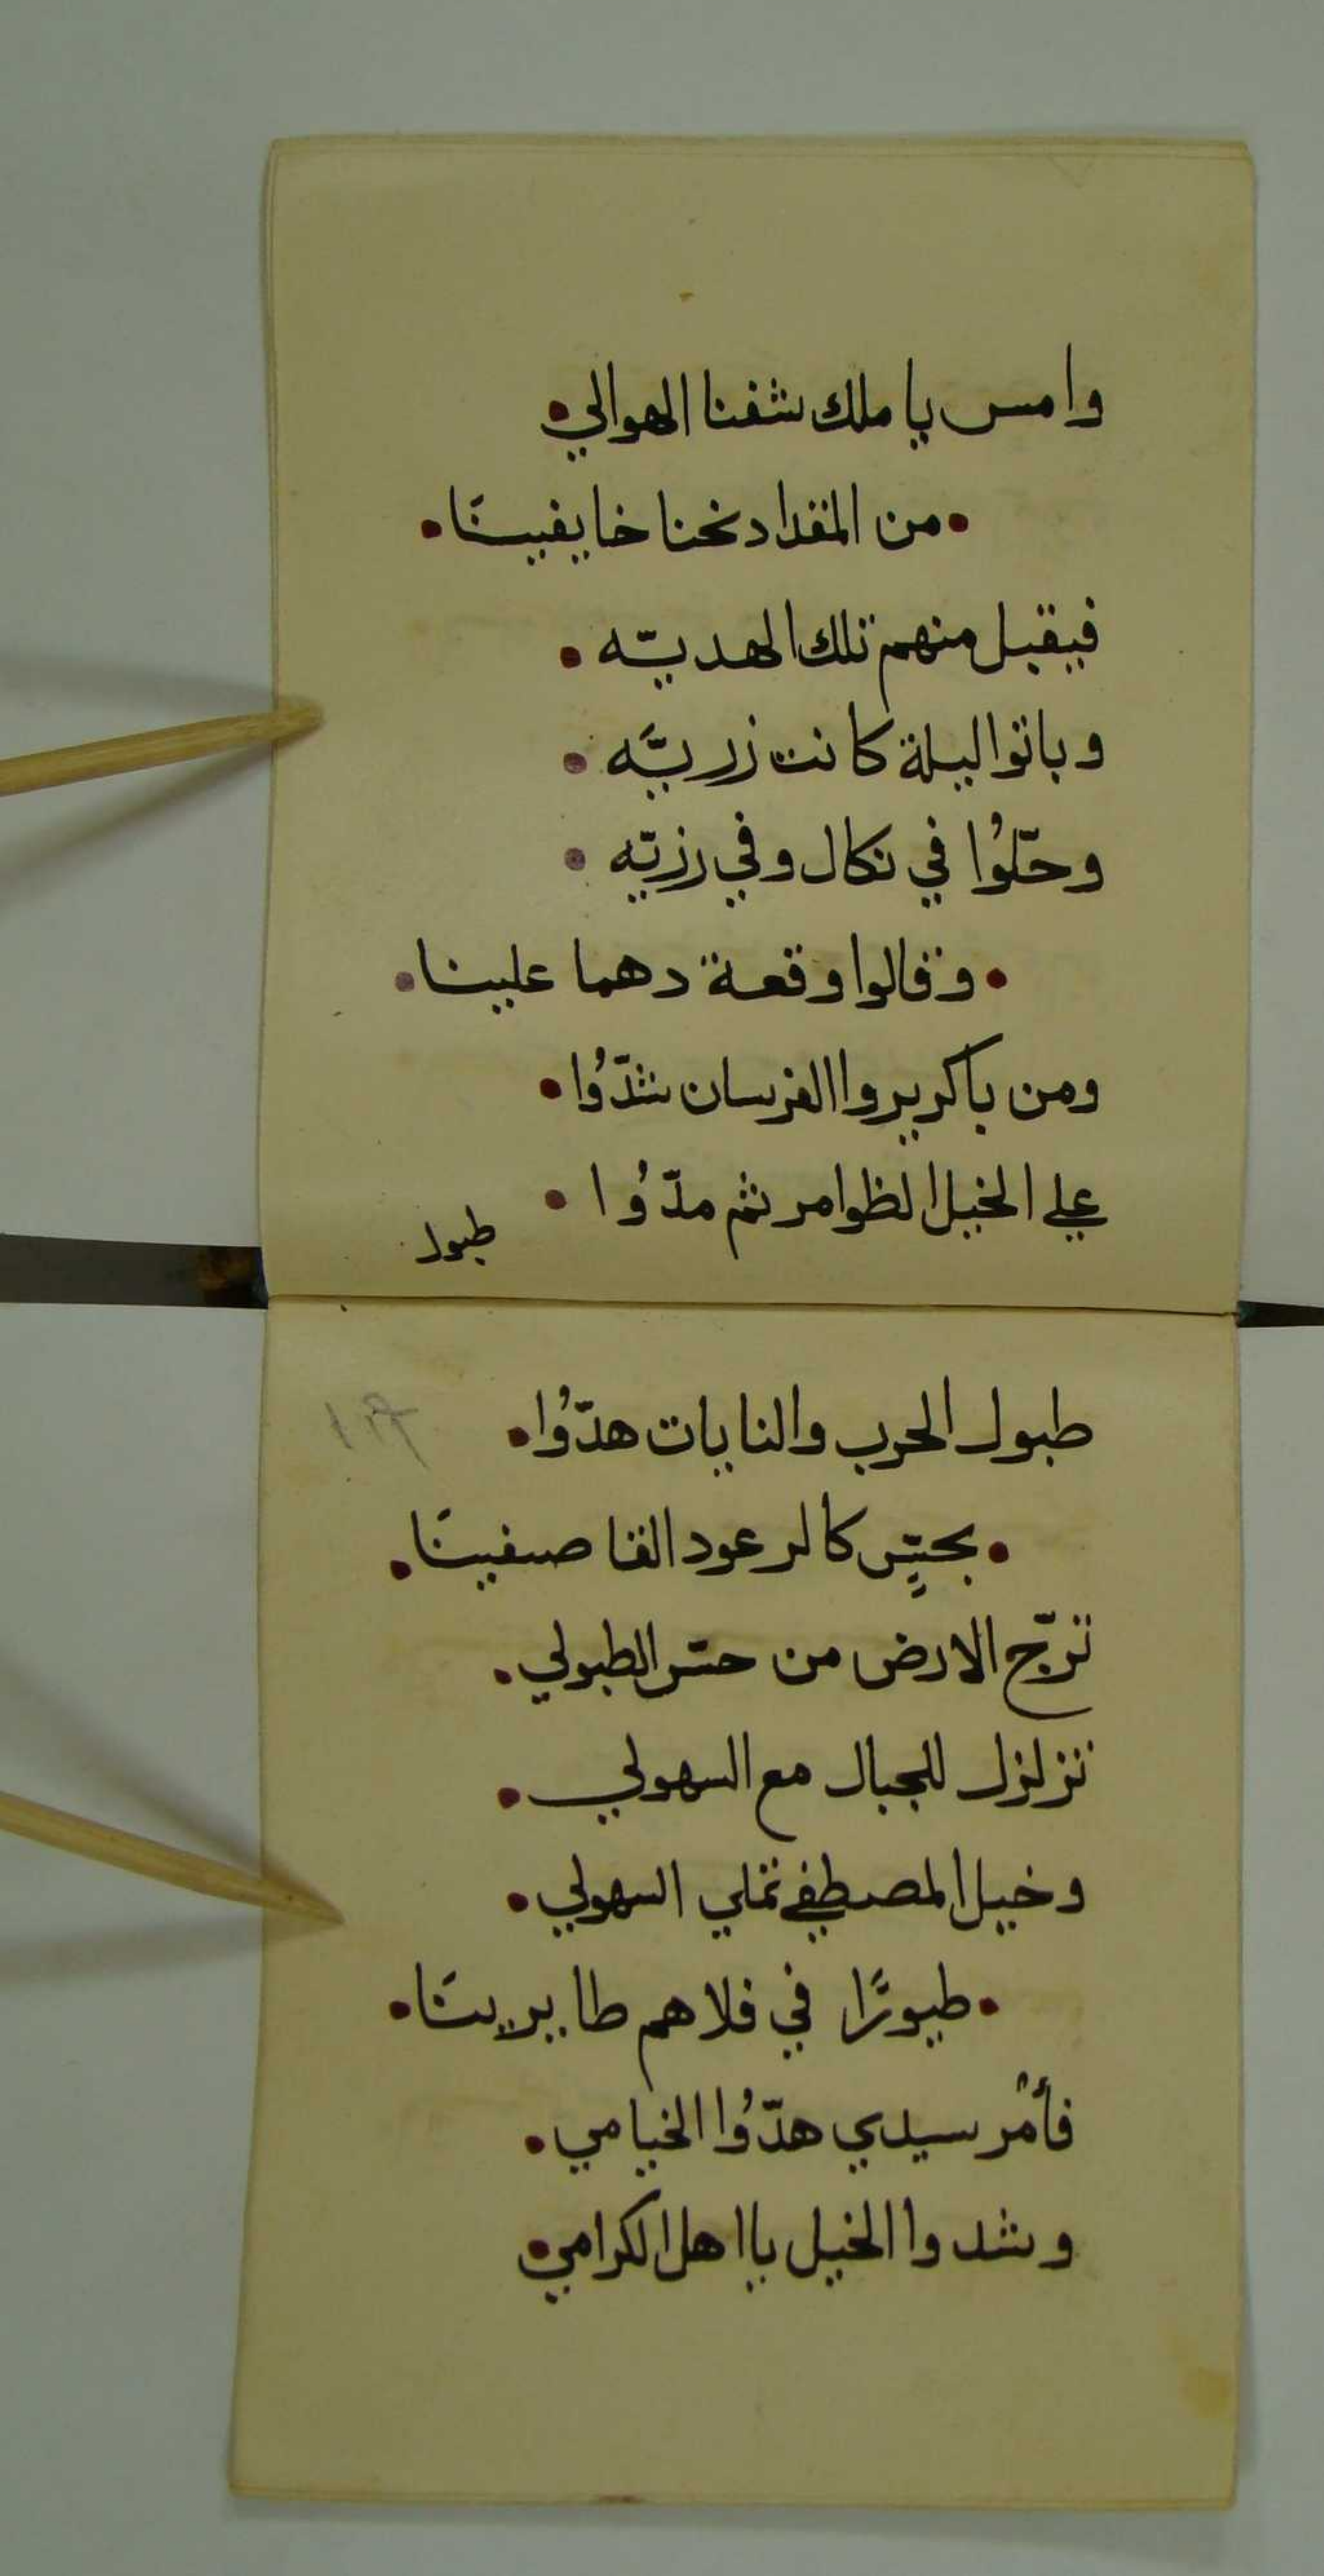 وامس يا ملك شفنا الهوالي
من المقداد نحنا خايفينَا
فيقبل منهم تلك الهديّه
وباتوا ليلة كانت زريَّه
وحَلّوُا في نكال وفي رزيّه
وقالوا وقعة دهما علينا
ومن باكر يروا الفرسان شدّوُا
علي الخيل الظوامر ثم مدّوُا
طبول
طبول الحرب والنايات هدّوُا
بحسٍّ كالرعود القاصفينَا
ترّج الارض من حسّ الطبولي
تزلزل للجبال مع السهولي
وخيل المصطفي تملي السهولي
طيورًا في فلاهم طايرينَا
فأمُر سيدي هدّوُا الخيامي
وشدوا الخيل يا اهل الكرامي